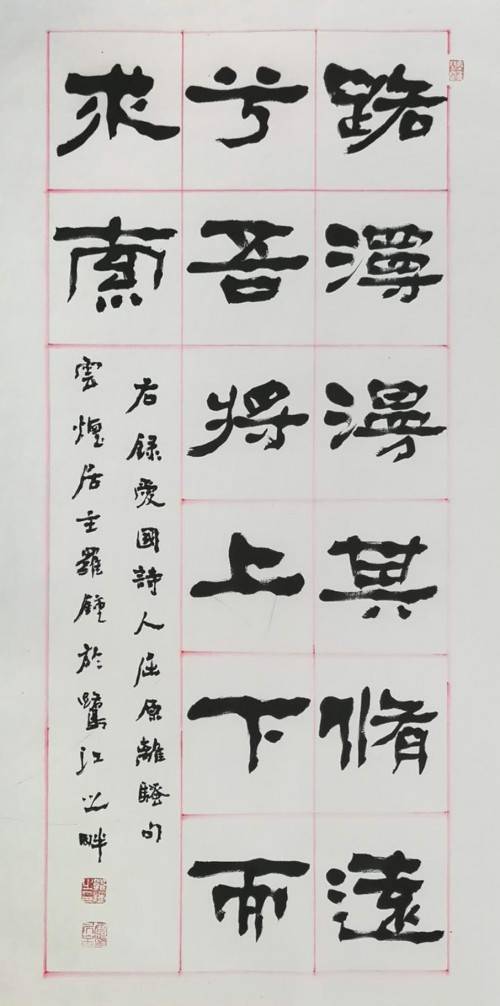 路漫漫其脩遠
兮吾將上下而
求索
右錄愛國詩人屈原離騷句
雲煙居主羅鍾於鷺江之畔